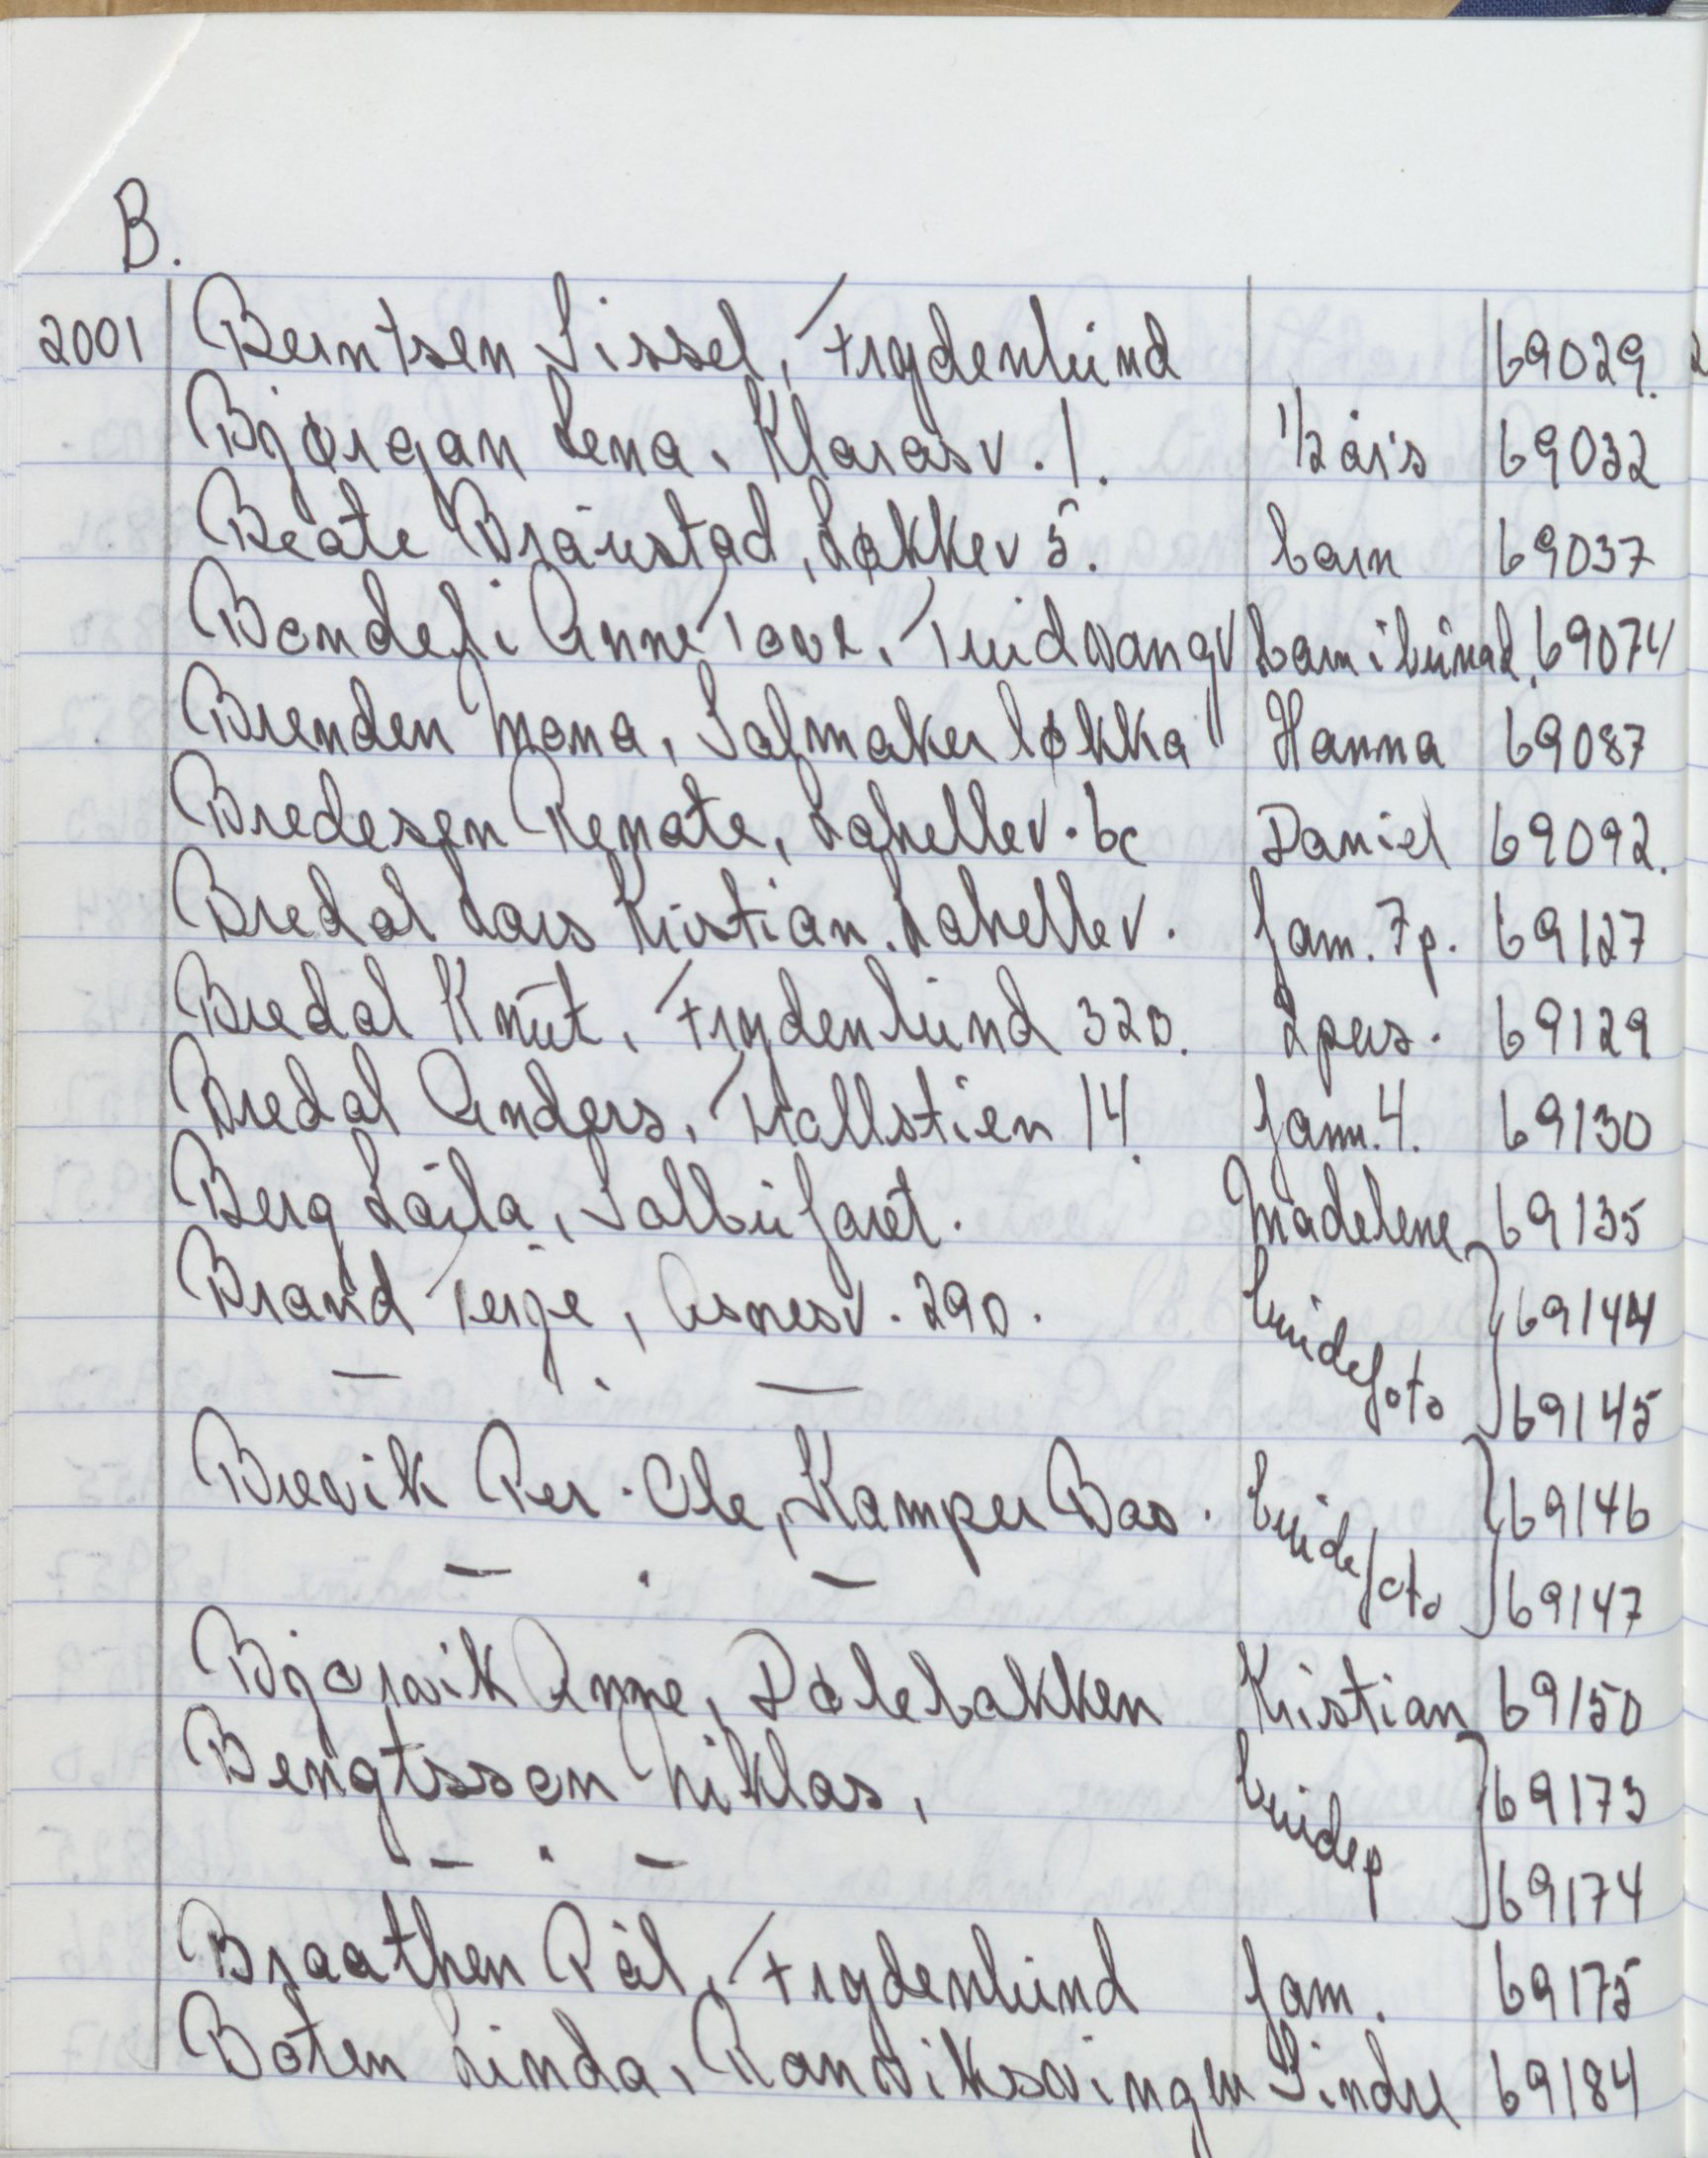 B.
2001 Berntsen Sissel, Frydenlund 69029.
Bjørgan Lena, Klaras v. 1. 1/2 års 69032
Beate Bråustad, Løkkev 5. barn 69037
Bondefi Anne Tove, Tuidvangv barn i bunad. 69074
Brenden Mona, Salmakerløkka Hanna 69087
Bredesen Renate, Lahellev. 6c Daniel 69092.
Bredal Lars Kristian. Lahellev. fam. 7p. 69127
Bredal Knut, Frydenlund 32B. 2 pers. 69129
Bredal Anders, Trollstien 14. fam. 4. 69130
Berg Laila, Solbufaret. Madelene 69135
Brand Terje, Åsnesv. 29D. brudefoto 69144
— . — 69145
Brevik Per. Ole, Kamper Bao. brudefoto 69146
— . — 69147
Bjørvik Anne, Dalebakken Kristian 69150
Bengtsson Niklas, brudep 69173
— . — 69174
Braathen Pål, Frydenlund fam. 69175
Boten Linda, Ranviksvingen Sindre 69184